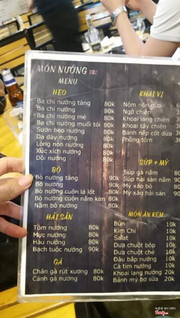 MÓN NƯỚNG
MENU
HEO
Ba chỉ nướng tảng 80k
Ba chỉ nướng 80k
Ba chỉ nướng mẹ 80k
Ba chỉ nướng muối tỏi 80k
Sườn heo nướng 80k
Dạ dày nướng 80k
Lòng non nướng 80k
Xúc xích nướng 80k
Dồi nướng 80k
BÒ
Bò nướng tảng 90k
Bò nướng 90k
Bò nướng cuộn lá lốt 80k
Bò nướng cuộn nấm kim 80k
Nầm bò nướng 80k
HẢI SẢN
Tôm nướng 80k
Mực nướng 80k
Hàu nướng 80k
Bạch tuộc nướng 90k
GÀ
Chân gà rút xương 80k
Cánh gà nướng 80k
KHAI VỊ
Khoai lang chiên
Khoai tây chiên
SÚP + MỲ
Súp gà nấm
Súp hải sản nấm
Mỳ xào bò
Mỳ xào hải sản
MÓN ĂN KÈM
Bún 10k
Kim Chi 10k
Salat
Dưa chuột bóp
Dưa chuột chẻ
Đậu bắp nướng
Cà tím nướng
Khoai lang nướng 20k
Bánh mỳ bơ sữa 20k